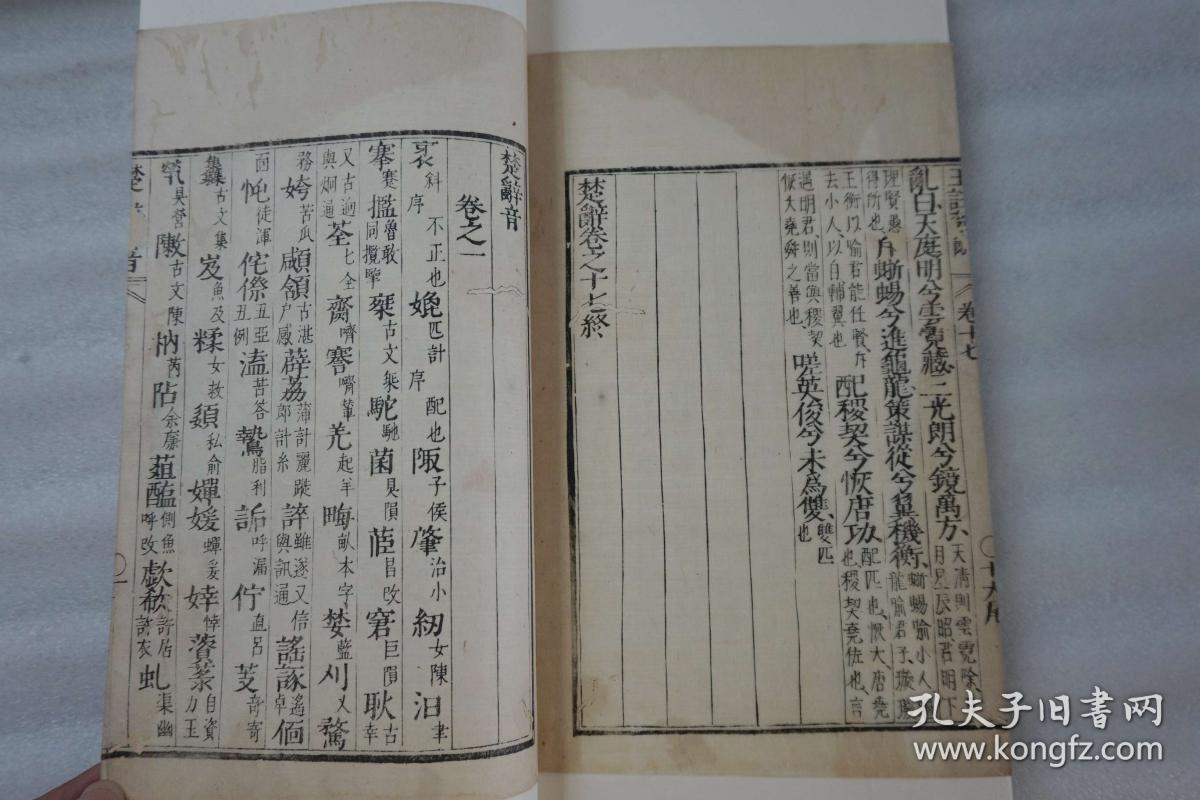 亂曰天庭明兮雲霓藏三光朗兮鏡萬方天清則雲霓除日月星辰昭君明下
理賢愚得所也斥蜥蜴兮進龜龍策謀從兮翼機衡蜥蜴喻小人龍喻君子璇璣
玉衡以喻君能任賢斥去小人以自輔翼也配稷契兮恢唐功配匹也恢大唐堯也稷契堯佐也言
遇明君則當與稷契恢大堯舜之善也嗟英俊兮未為雙雙匹也
楚辭卷之十七終
卷十七
楚辭音
卷之一
裘斜序不正也媲匹計序配也陬子侯肇治小紉女陳汩聿
搴蹇擥魯敢同攬擥椉古文乘駝馳菌具隕茝昌改窘巨隕耿古幸
又古迥與炯通荃七全齌嚌謇嚌羌起羊畮畝本字婪藍刈乂騖
務姱苦瓜顑頷古湛戶感薜荔蒲計麗蹝郎計糸誶雖遂又信與訊通謠諑遙卓偭
面忳徒渾侘傺丑亞丑例溘苦答鷙脂利詬呼漏佇直呂芰奇寄
古文集岌魚及糅女救須私俞嬋媛蟬爰婞悻薋菉自資力玉
煢具營敶古文陳枘芮阽余廉菹醢側魚呼改歔欷許居許衣虬渠幽
孔夫子旧书网
www.kongfz.com